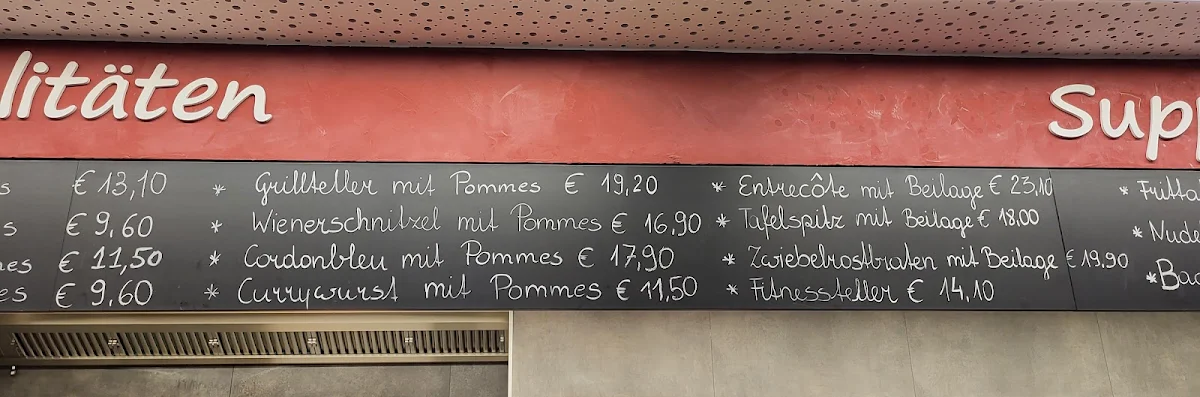 litäten
Supp
s € 13,10 * Grillteller mit Pommes € 19,20 * Entrecôte mit Beilage € 23,10 * Fritta
s € 9,60 * Wienerschnitzel mit Pommes € 16,90 * Tafelspitz mit Beilage € 18,00 * Nude
mes € 11,50 * Cordonbleu mit Pommes € 17,90 * Zwiebelrostbraten mit Beilage € 19,90 * Bac
es € 9,60 * Currywurst mit Pommes € 11,50 * Fitnessteller € 14,10